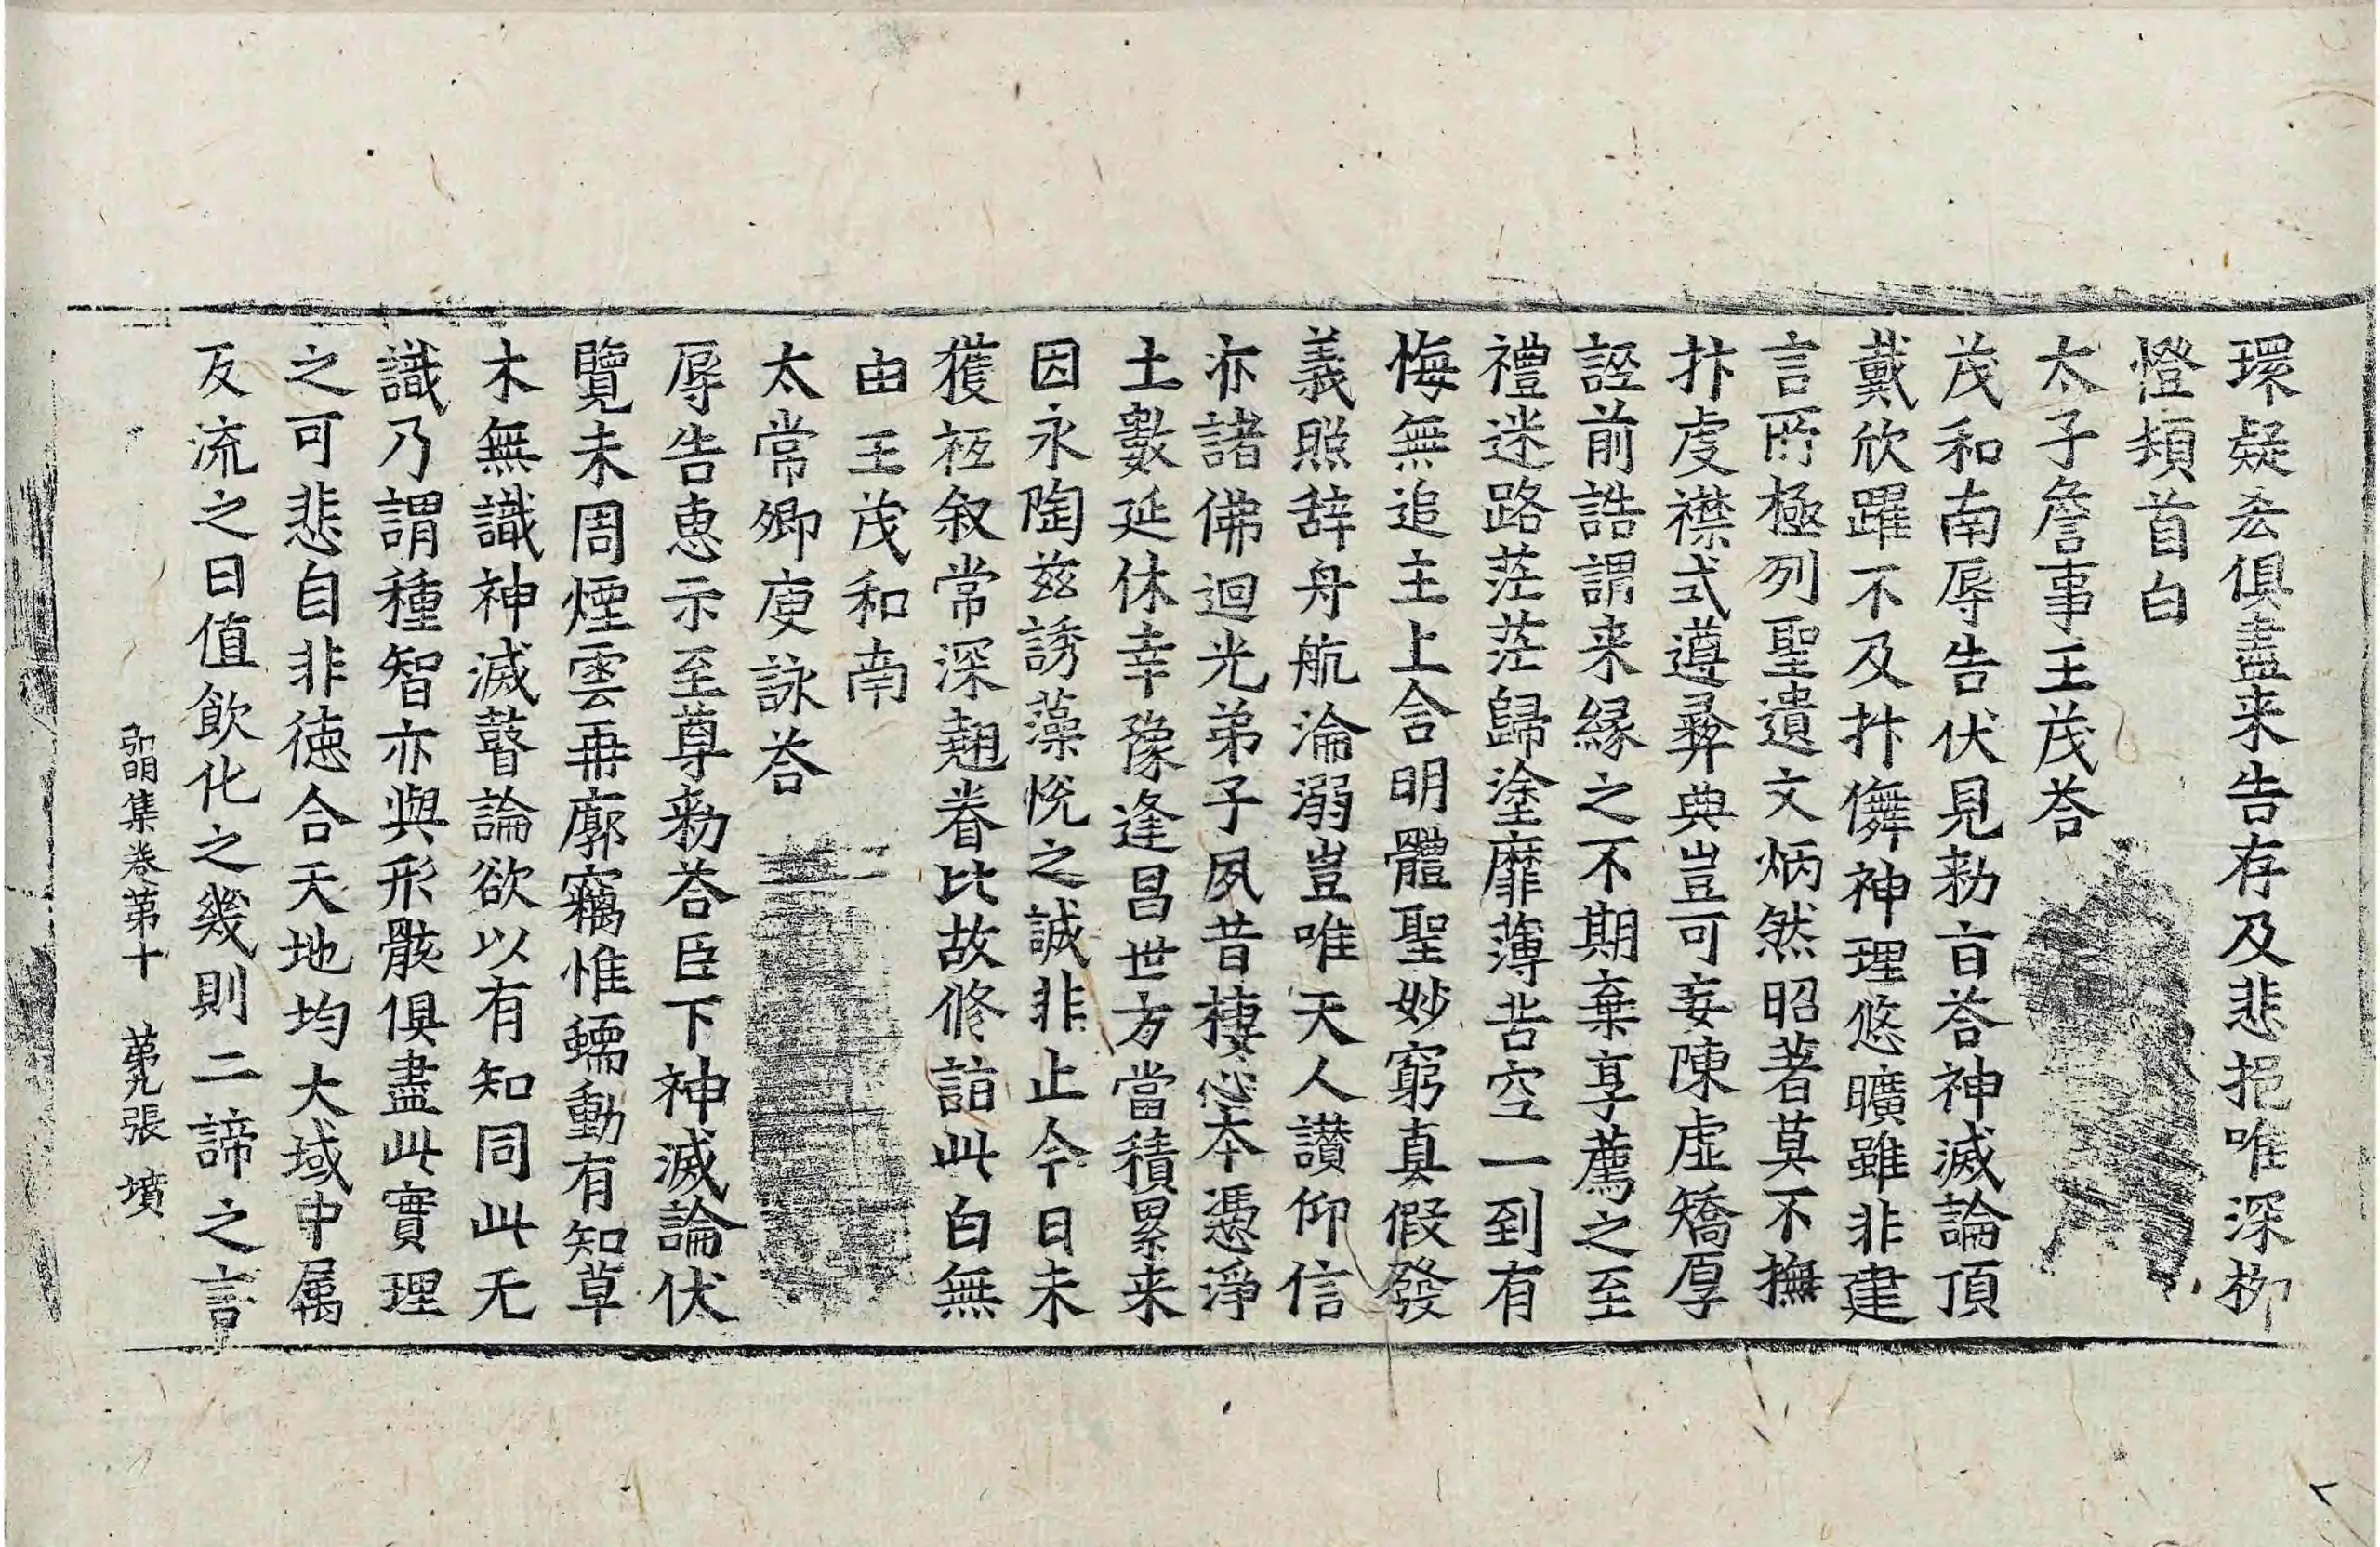 環疑去俱盡来告存及悲挹唯深栁
憕頍首白
太子詹事王茂荅
茂和南辱告伏見勑旨荅神滅論頂
戴欣躍不及抃儛神理悠曠雖非建
言所極列聖遺文炳然昭著莫不撫
抃虔襟式遵彛典豈可妄陳虛矯厚
誣前誥謂来緣之不期棄享薦之至
禮迷路茫茫歸塗靡薄苦空一到有
悔無追主上含明體聖妙窮真假發
義照辞舟航淪溺豈唯天人讃仰信
亦諸佛迴光弟子夙昔棲心本憑淨
土數延休幸豫逢昌世方當積累来
因永陶兹誘藻悅之誠非止今日未
獲袛叙常深翹眷比故修詣此白無
由王茂和南
太常卿庾詠荅
辱告惠示至尊勑荅臣下神滅論伏
覽未周煙雲再廓竊惟蠕動有知草
木無識神滅瞽論欲以有知同此无
識乃謂種智亦與形骸俱盡此實理
之可悲自非徳合天地均大域中属
反流之日值飲化之幾則二諦之言
弘明集卷第十　第九張　墳